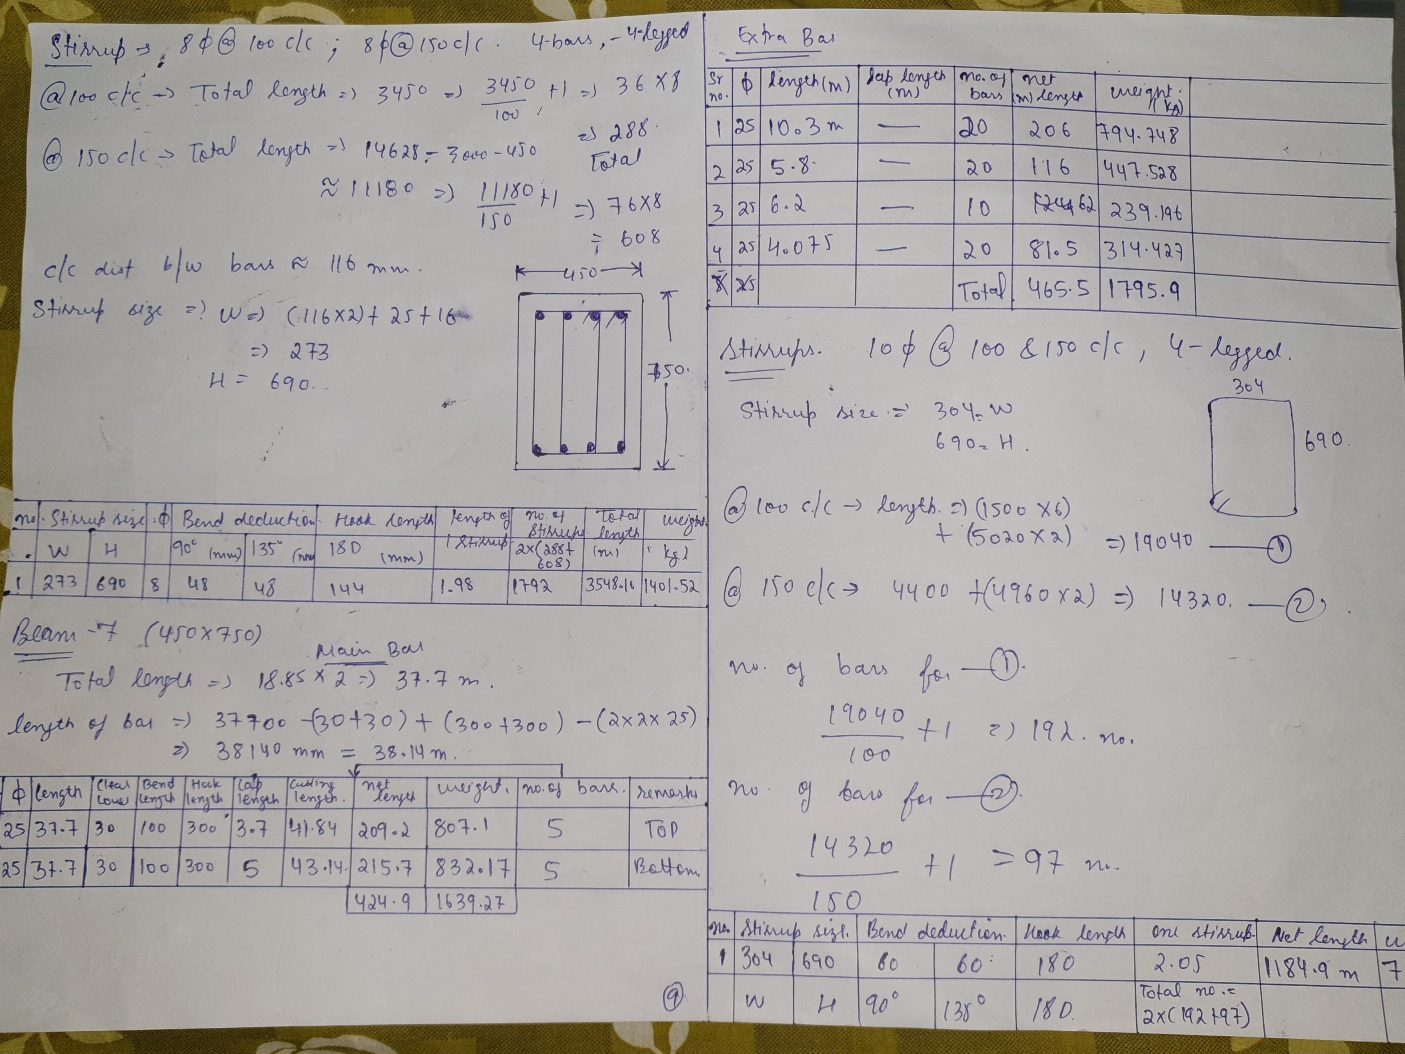 Stirrup → 8ϕ@ 100 c/c ; 8ϕ@150c/c. 4-bars, - 4-legged
@100 c/c → Total length => 3450 => 3450/100 +1 => 36 x 8
=> 288.
Total
@ 150 c/c → Total length => 14628 - 3000 - 450
≈ 11180 => 11180/150 +1 => 76x8
= 608
c/c dist b/w bars ≈ 116 mm.
Stirrup size => W => (116x2)+ 25+16
=> 273
H = 690.
450
750.
no. Stirrup size. ϕ Bend deduction Hook length length of 1 Stirrup no. of Stirrups Total length weight.
W H 90° (mm) 135° (mm) 180 (mm) 2x(288+608) (m) (kg)
1 273 690 8 48 48 144 1.98 1792 3548.16 1401.52
Beam - 7 (450x750)
Main Bar
Total length => 18.85 x 2 => 37.7 m.
length of bar => 37700 -(30+30) + (300+300) - (2x2x25)
=> 38140 mm = 38.14 m.
ϕ length Clear Cover Bend length Hook length Lap length Cutting length. net length weight. no. of bars. remarks
25 37.7 30 100 300 3.7 41.84 209.2 807.1 5 TOP
25 37.7 30 100 300 5 43.14 215.7 832.17 5 Bottom
424.9 1639.27
9
Extra Bar
Sr no. ϕ length(m) lap length (m) no. of bars net (m) length weight. (kg)
1 25 10.3 m — 20 206 794.748
2 25 5.8 — 20 116 447.528
3 25 6.2 — 10 62 239.196
4 25 4.075 — 20 81.5 314.427
5 25 Total 465.5 1795.9
Stirrups. 10 ϕ @ 100 & 150 c/c, 4-legged.
Stirrup size => 304 = W
690 = H.
304
690.
@ 100 c/c → length. => (1500 x 6)
+ (5020 x 2) => 19040 — ①
@ 150 c/c → 4400 + (4960 x 2) => 14320. — ②
no. of bars for — ①.
19040/100 +1 => 192. no.
no. of bars for — ②.
14320/150 +1 = 97 no.
no. Stirrup size. Bend deduction. Hook length One stirrup. Net length w
1 304 690 60 60 180 2.05 1184.9 m 7
W H 90° 135° 180. Total no. = 2x(192+97)